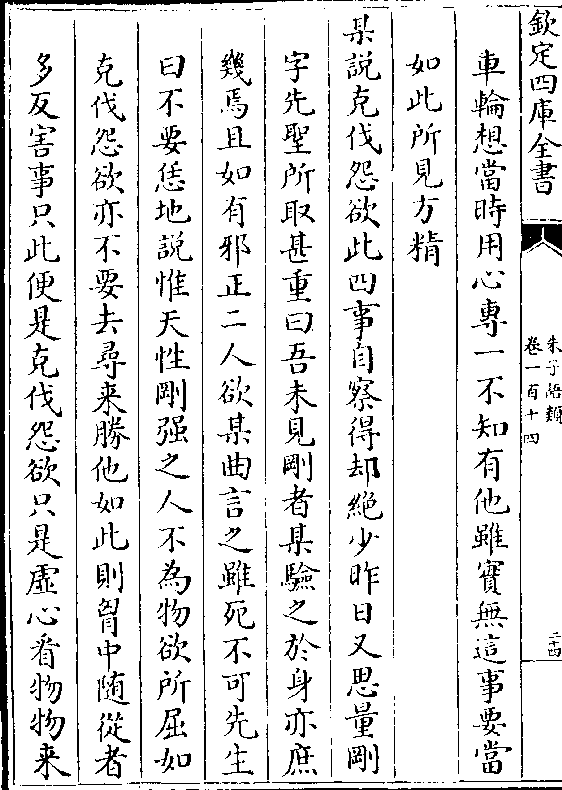 欽定四庫全書
朱子語類
卷一百十四
二十四
車輪想當時用心專一不知有他雖實無這事要當
如此所見方精
某說克伐怨欲此四事自察得却絶少昨日又思量剛
字先聖所取甚重曰吾未見剛者某驗之於身亦庶
幾焉且如有邪正二人欲某曲言之雖死不可先生
曰不要恁地說惟天性剛强之人不為物欲所屈如
克伐怨欲亦不要去尋來勝他如此則胷中隨從者
多反害事只此便是克伐怨欲只是虛心看物物来